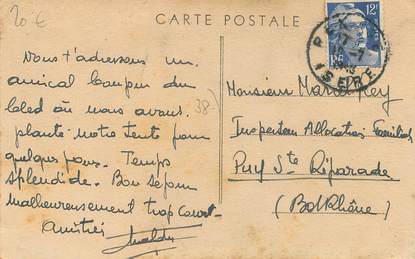 20 €
CARTE POSTALE
12F
ISÈRE
Nous t'adressons un
amical bonjour du
bled où nous avons
38-
planté notre tente pour
quelques jours. Temps
splendide. Bon séjour
malheureusement trop court.
Amitiés
Monsieur Marcel Rey
Inspecteur Allocations Familiales
Puy Ste Réparade
(B du Rhône)